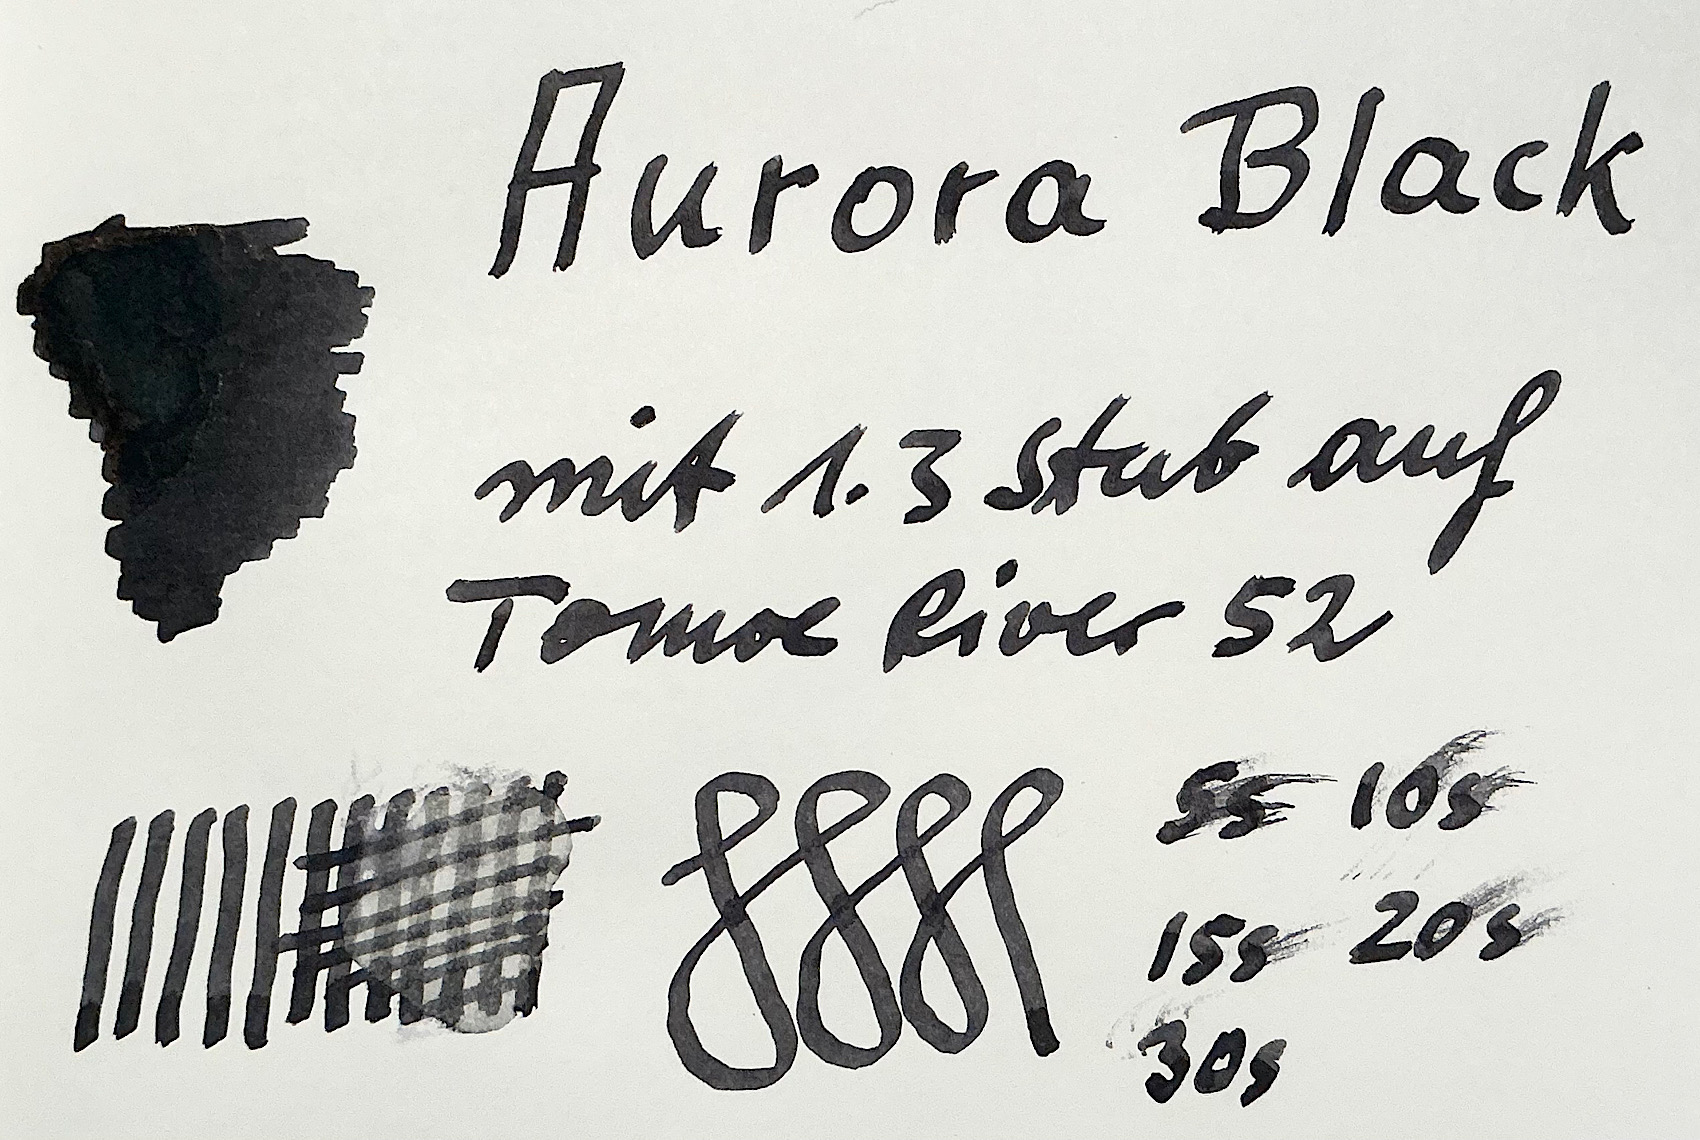 Aurora Black
mit 1.3 Stub auf
Tomoe River 52
5s 10s
15s 20s
30s